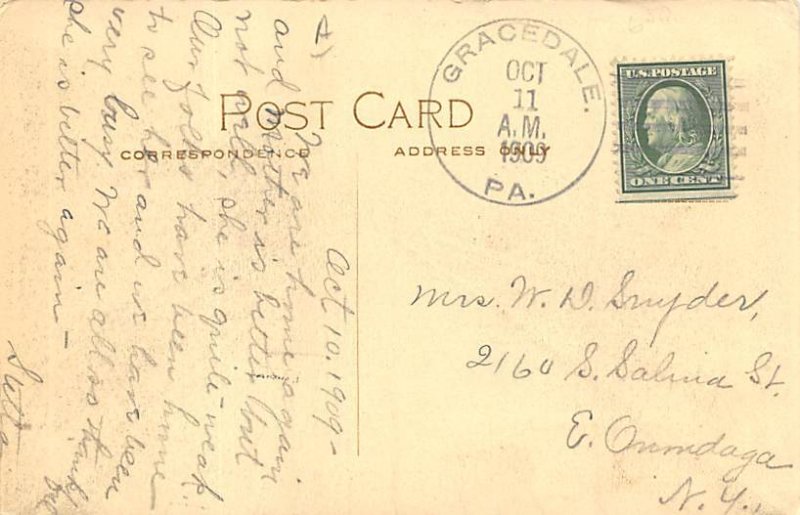 POST CARD
CORRESPONDENCE
ADDRESS ONLY
GRACEDALE.
OCT
11
A.M.
1909
PA.
U.S. POSTAGE
ONE CENT
Oct 10. 1909 -
We are home again
and Mother is better but
not well, she is quite weak.
Our folks have been home
to see her and we have been
very busy We are all so thank
ful
she is better again -
Mrs. W. D. Snyder,
2160 S. Salina St.
E. Onondaga
N. Y.